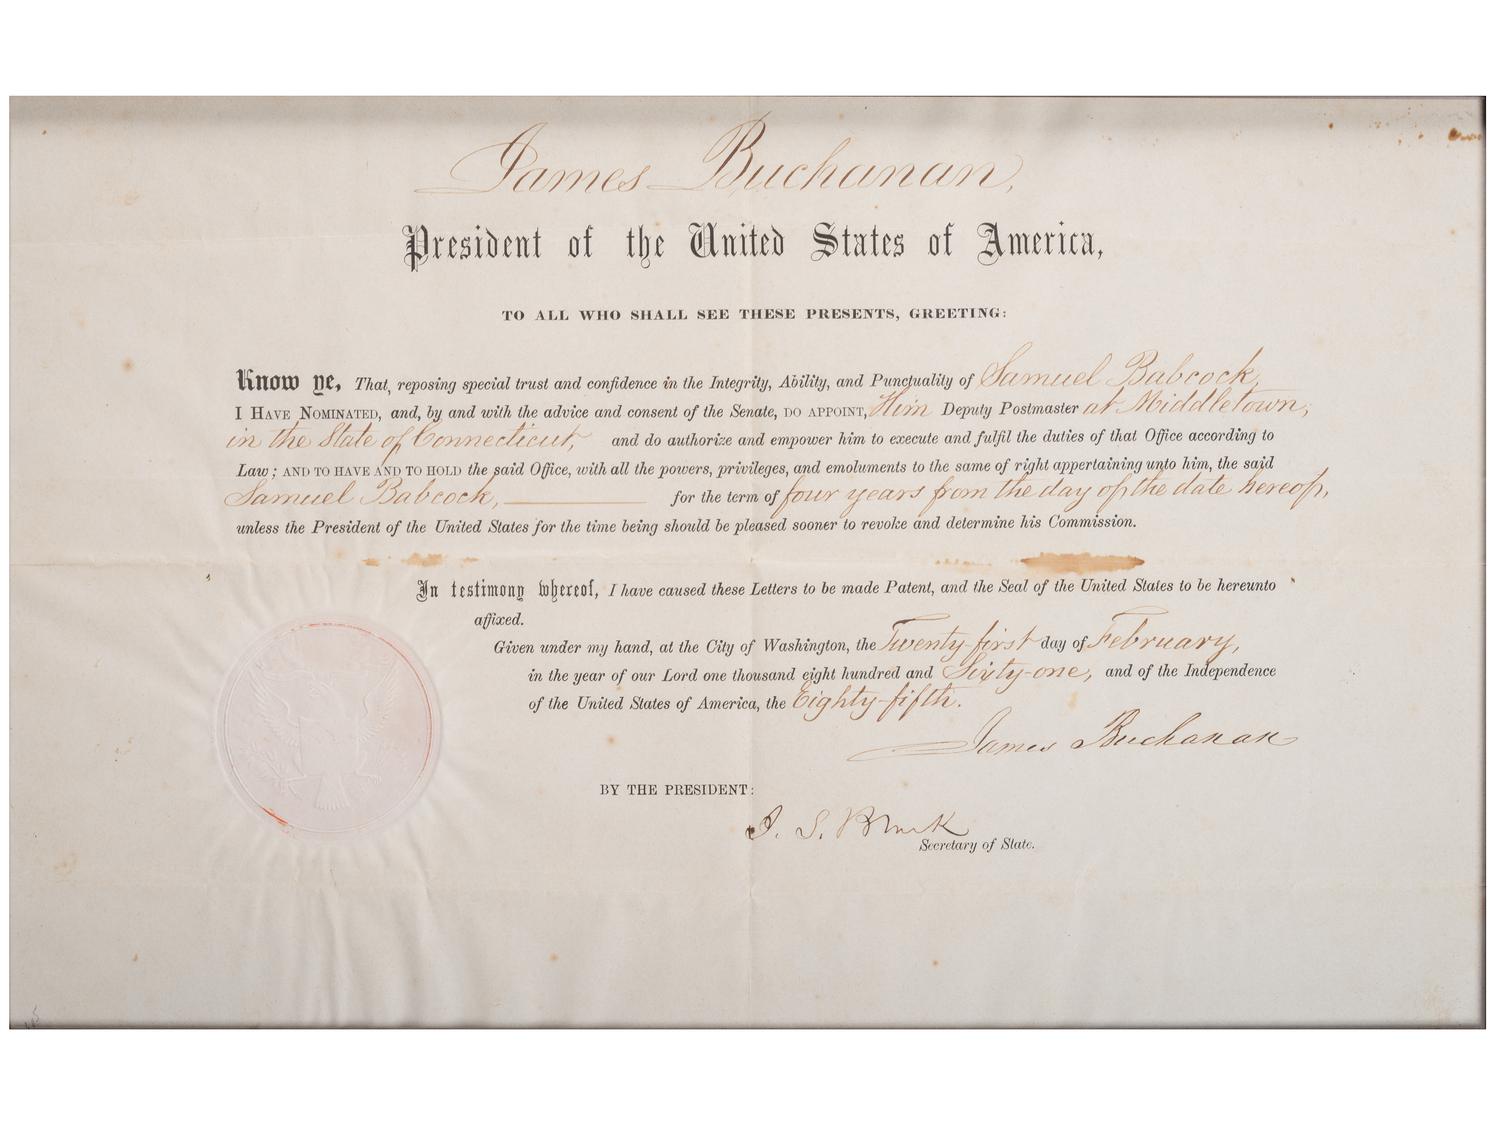 James Buchanan,
President of the United States of America,
TO ALL WHO SHALL SEE THESE PRESENTS, GREETING:
Know ye, That, reposing special trust and confidence in the Integrity, Ability, and Punctuality of Samuel Babcock,
I HAVE NOMINATED, and, by and with the advice and consent of the Senate, DO APPOINT, Him Deputy Postmaster at Middletown,
in the State of Connecticut, and do authorize and empower him to execute and fulfil the duties of that Office according to
Law; AND TO HAVE AND TO HOLD the said Office, with all the powers, privileges, and emoluments to the same of right appertaining unto him, the said
Samuel Babcock, for the term of four years from the day of the date hereof,
unless the President of the United States for the time being should be pleased sooner to revoke and determine his Commission.
In testimony whereof, I have caused these Letters to be made Patent, and the Seal of the United States to be hereunto
affixed.
Given under my hand, at the City of Washington, the Twenty-first day of February,
in the year of our Lord one thousand eight hundred and Sixty-one, and of the Independence
of the United States of America, the Eighty-fifth.
James Buchanan
BY THE PRESIDENT:
J. S. Black
Secretary of State.